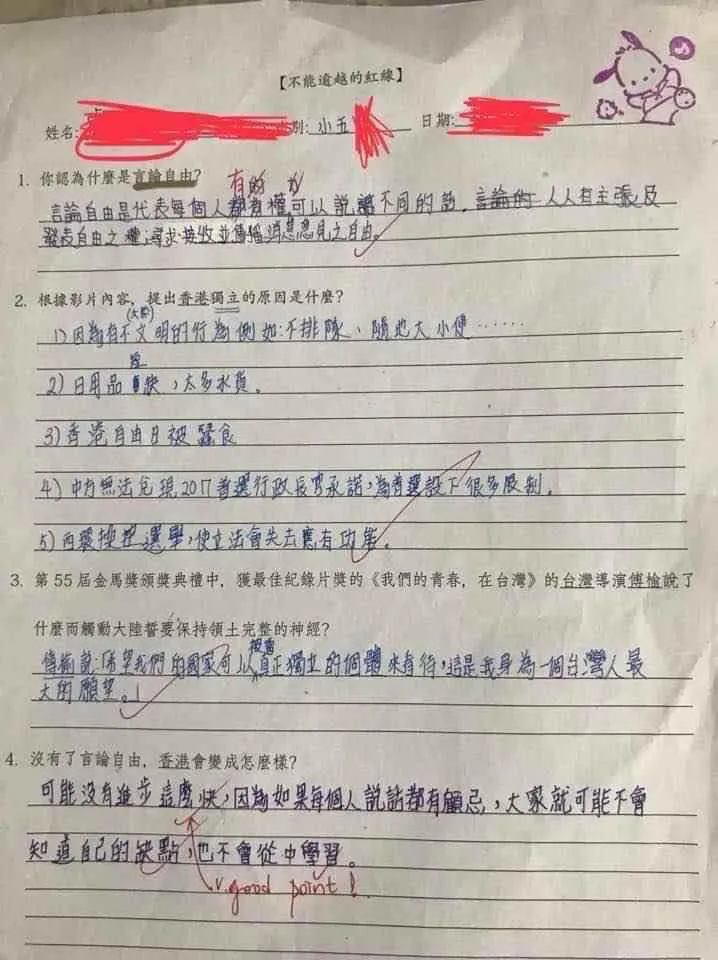 【不能逾越的紅線】
姓名: 別: 小五 日期:
1. 你認為什麼是言論自由?
有的 力
言論自由是代表每個人都有權可以說不同的話。言論的 人人有主張及
發表自由之權;尋求接收並傳播消息意見之自由。
2. 根據影片內容,提出香港獨立的原因是什麼?
(大陸)
1) 因為有不文明的行為例如:不排隊、隨地大小便……
短
2) 日用品缺,太多水貨。
3) 香港自由日被蠶食
4) 中方無法兌現2017普選行政長官承諾,為普選設下很多限制。
5) 西環操控選舉,使立法會失去應有功能。
3. 第 55 屆金馬獎頒獎典禮中,獲最佳紀錄片獎的《我們的青春,在台灣》的台灣導演傅榆說了
什麼而觸動大陸誓要保持領土完整的神經?
被當
傅榆說:「希望我們的國家可以真正獨立的個體來看待,這是我身為一個台灣人最
大的願望。」
4. 沒有了言論自由,香港會變成怎麼樣?
可能沒有進步這麼快,因為如果每個人說話都有顧忌,大家就可能不會
知道自己的缺點,也不會從中學習。
good point!